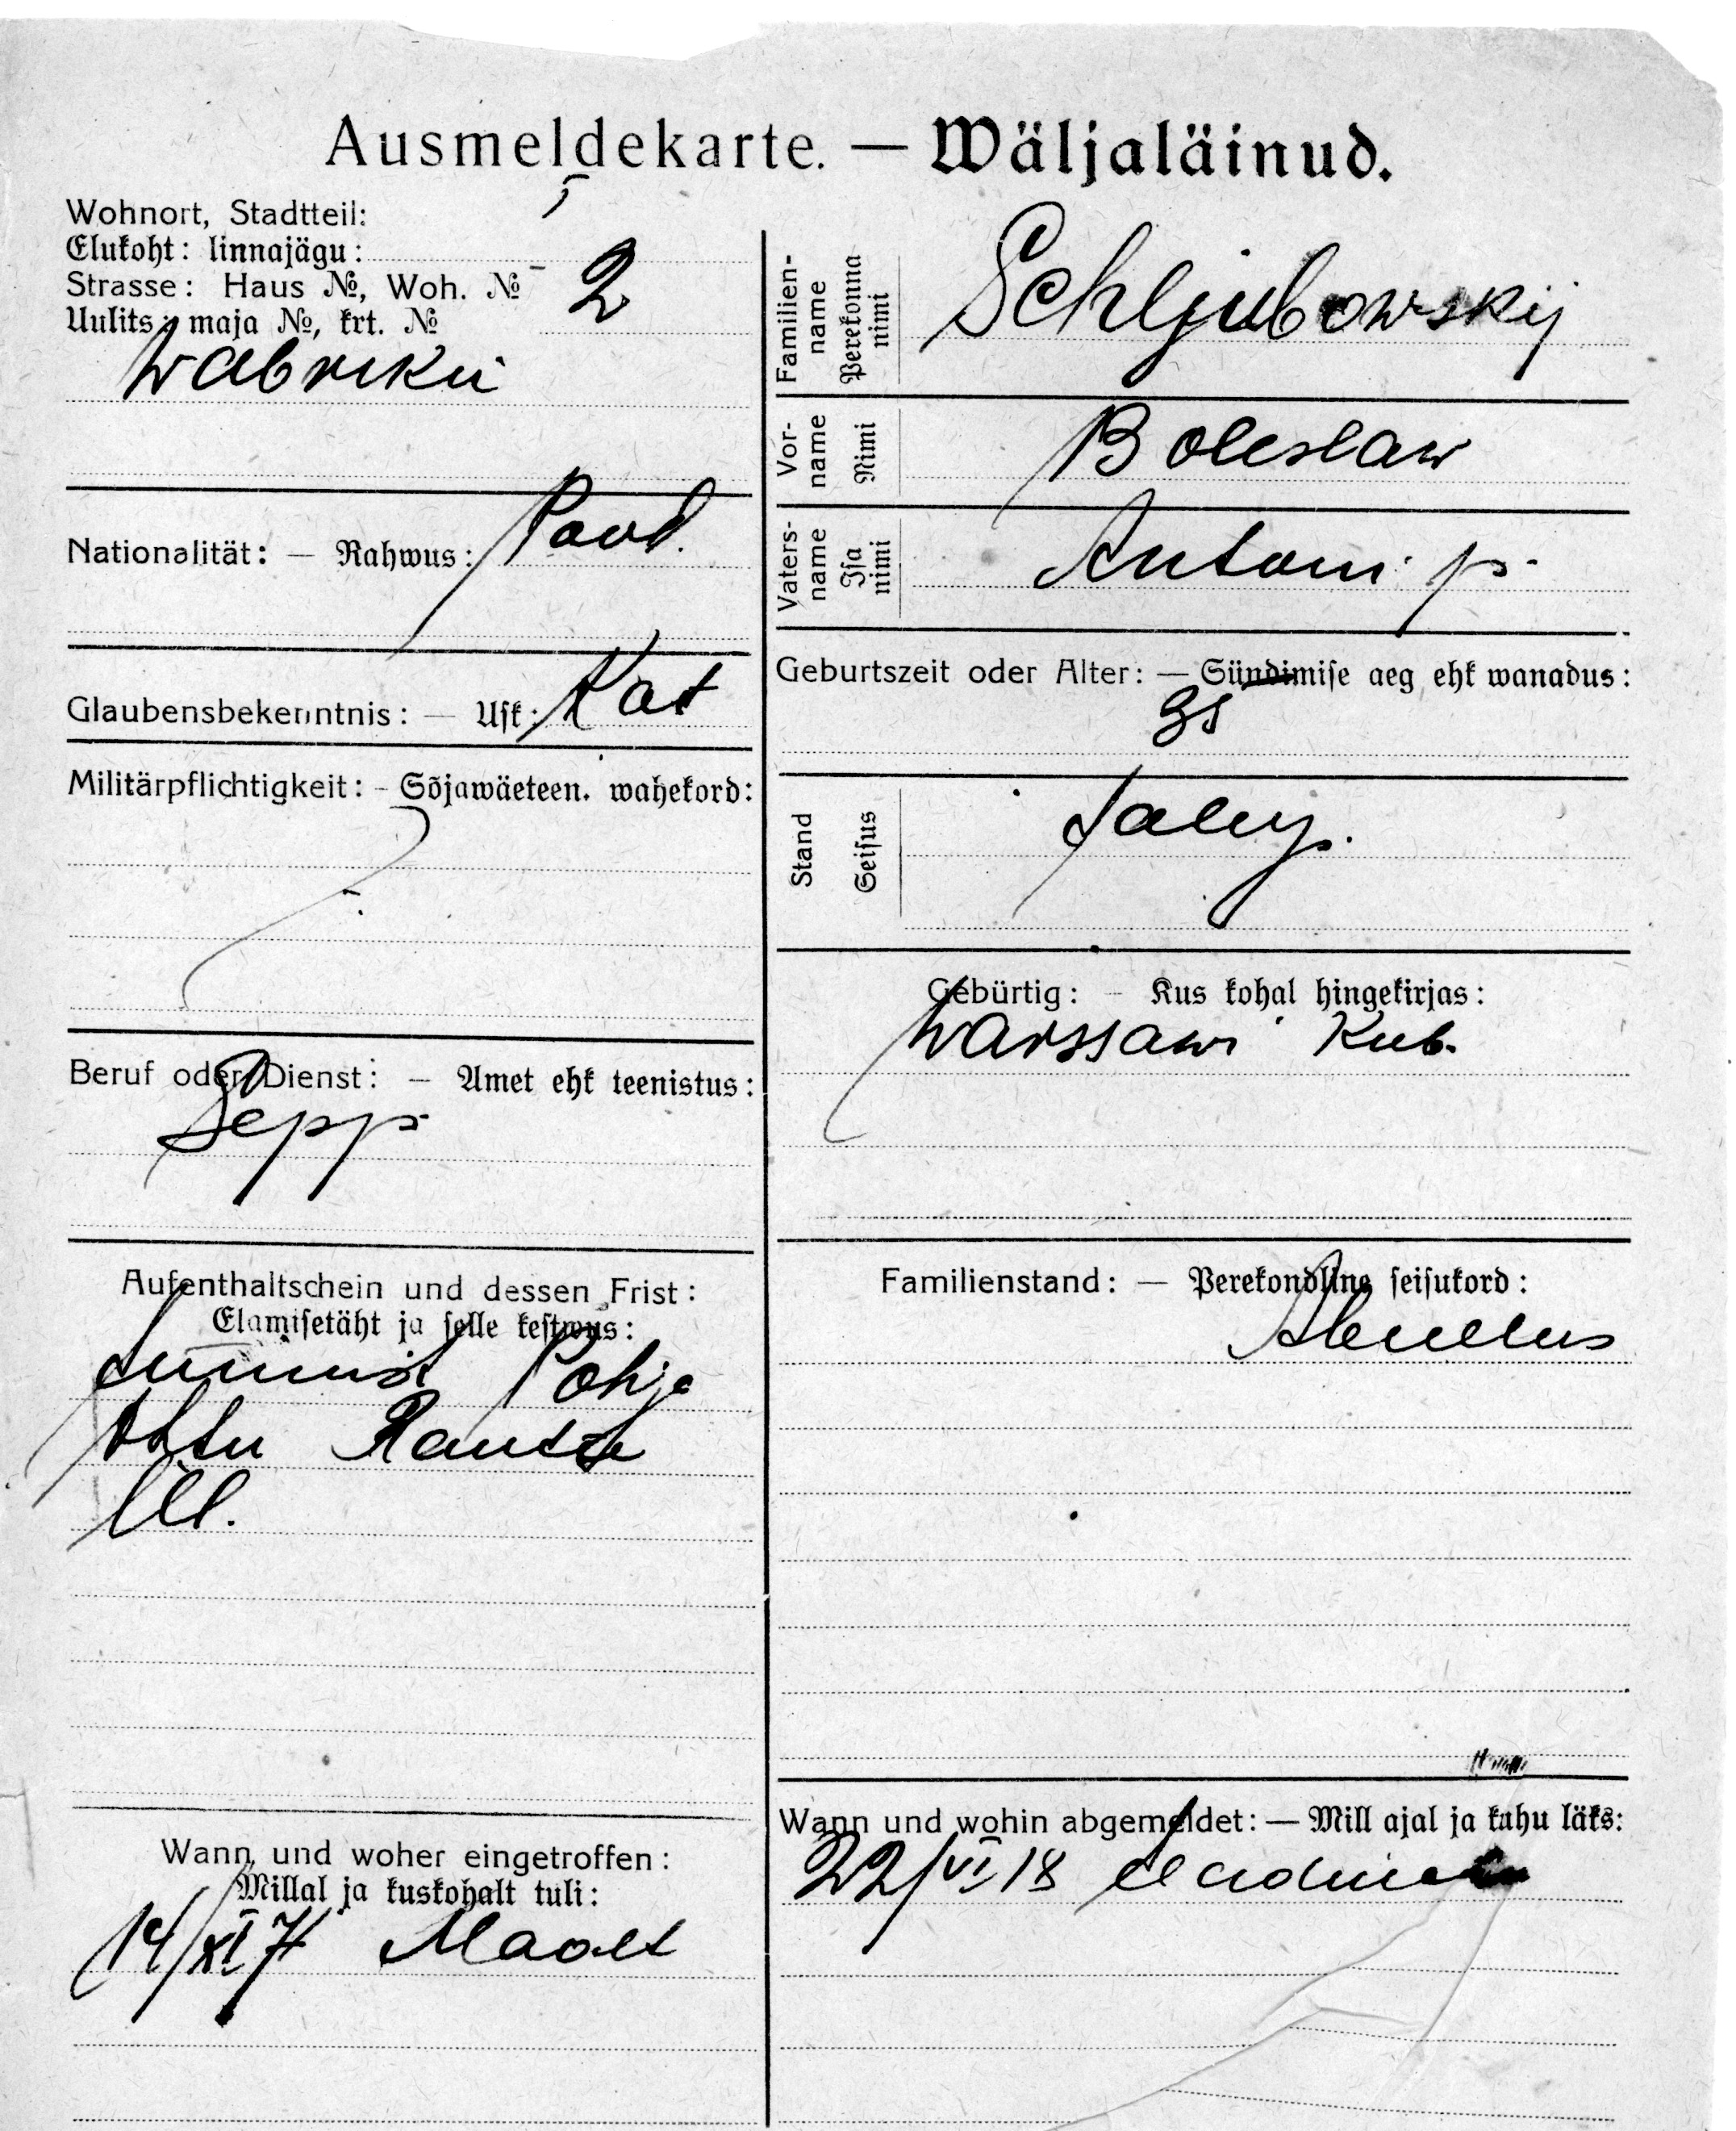 Ausmeldekarte. — Wäljaläinud.
Wohnort, Stadtteil:
Elukoht: linnajägu:
Strasse: Haus №, Woh. №
Uulits: maja №, krt. №
2
Wabriku
Nationalität: — Rahwus:
Glaubensbekenntnis: — Usk: Kat
Militärpflichtigkeit: - Sõjawäeteen. wahekord:
Beruf oder Dienst: — Amet ehk teenistus:
Sepp
Aufenthaltschein und dessen Frist:
Elamisetäht ja selle kestwus:
Pohja
Wann und woher eingetroffen:
Millal ja kuskohalt tuli:
14/XI 17 Maalt
Familien-name Perekonna nimi
Schljubowskij
Vor-name Nimi
Boleslaw
Vaters-name Isa nimi
Antoni p.
Geburtszeit oder Alter: — Sündimise aeg ehk wanadus:
Stand Seisus
Talup.
Gebürtig: — Kus kohal hingekirjas:
Warssawi Kub.
Familienstand: — Perekondline seisukord:
Abielus
Wann und wohin abgemeldet: — Mill ajal ja kuhu läks:
22/VI 18